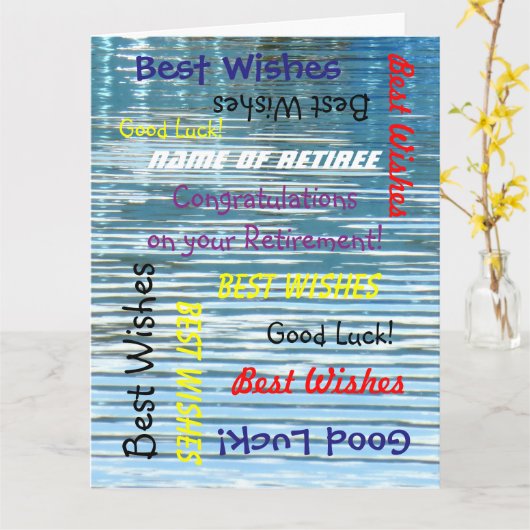 Best Wishes
Best Wishes
Best Wishes
Good Luck!
NAME OF RETIREE
Congratulations
on your Retirement!
BEST WISHES
Best Wishes
BEST WISHES
Good Luck!
Best Wishes
Good Luck!